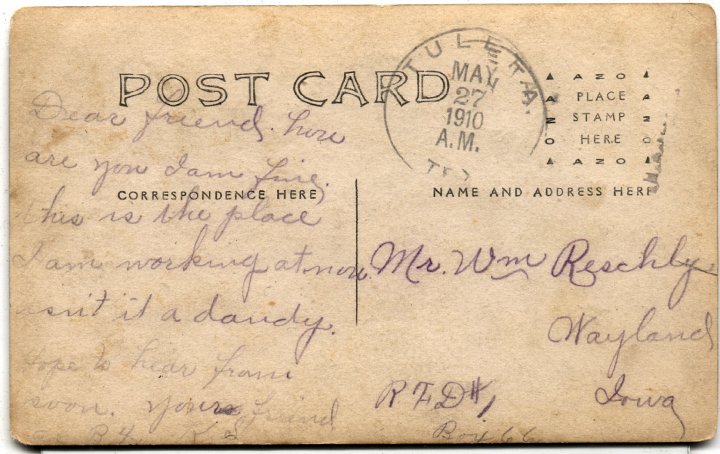 POST CARD
TULERA,
MAY
27
1910
A.M.
TEX
AZO
PLACE
STAMP
HERE
AZO
CORRESPONDENCE HERE
NAME AND ADDRESS HERE
Dear friend. how
are you I am fine.
this is the place
I am working at now
isnt it a dandy.
hope to hear from
soon. Yours friend
Mr. Wm Reschly
Wayland
Iowa
RFD #1
Box 66